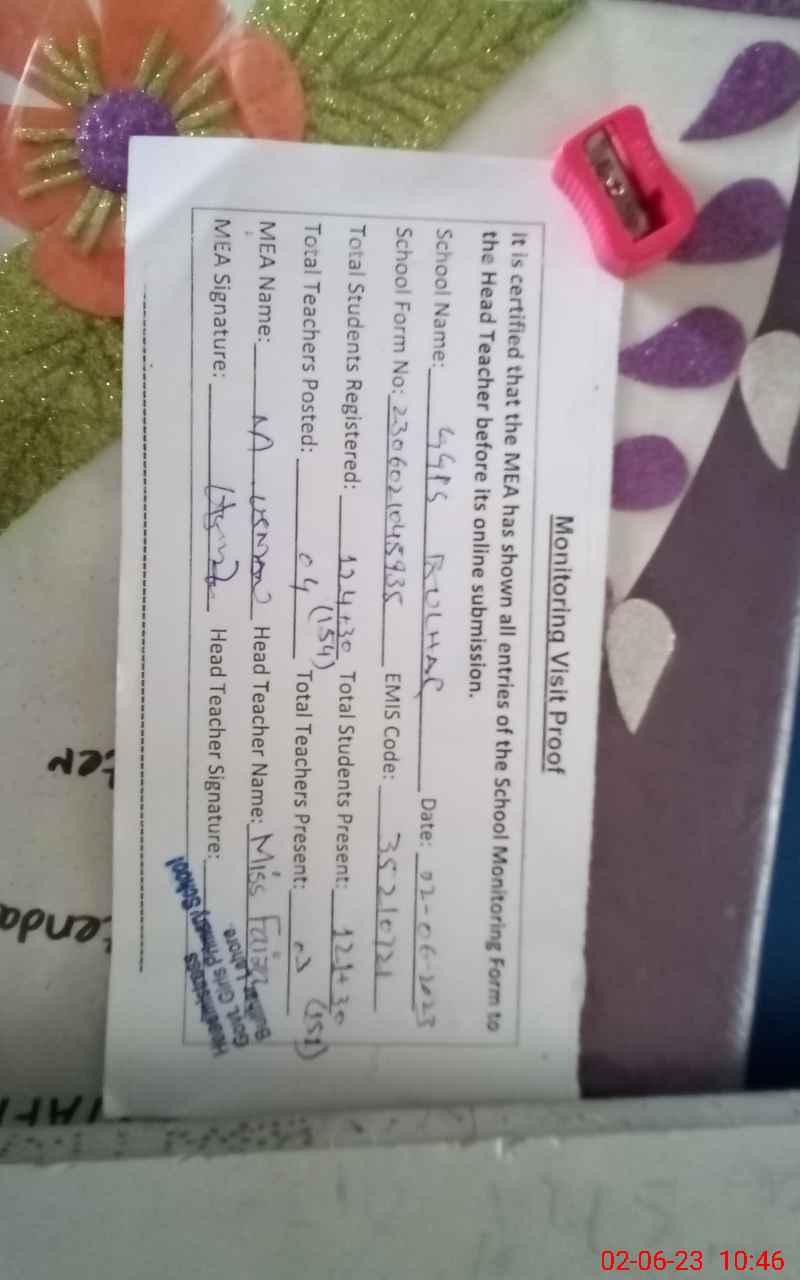 Monitoring Visit Proof
It is certified that the MEA has shown all entries of the School Monitoring Form to
the Head Teacher before its online submission.
School Name: GGPS BULHAR Date: 02-06-2023
School Form No: 2306021045935 EMIS Code: 35210721
Total Students Registered: 124+30 (154) Total Students Present: 121+30 (151)
Total Teachers Posted: 04 Total Teachers Present: 03
MEA Name: M USMAN Head Teacher Name: Miss Faiza
MEA Signature: Head Teacher Signature:
Headmistress
Govt. Girls Primary School
Lahore
02-06-23 10:46